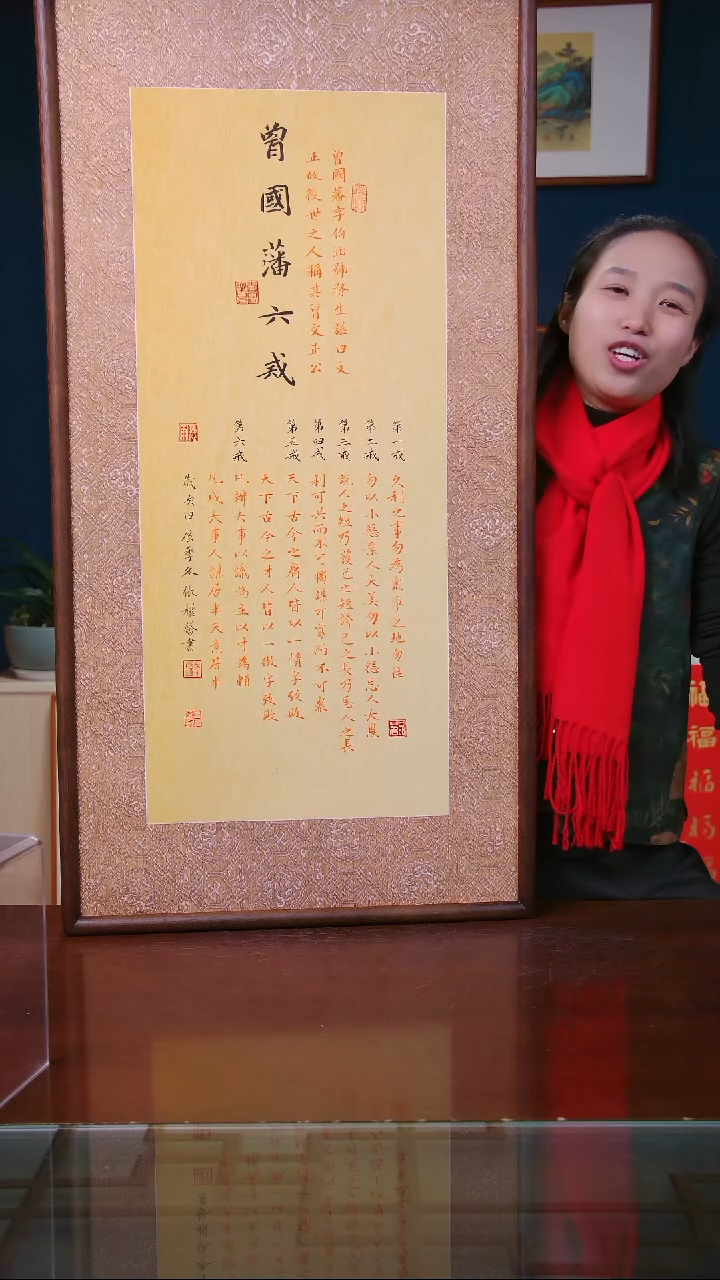 曾國藩六戒
曾國藩字伯涵號滌生謚曰文
正故後世之人稱其曾文正公
第一戒 久利之事勿為衆爭之地勿往
第二戒 勿以小惡棄人大美勿以小怨忘人大恩
第三戒 說人之短乃護己之短誇己之長乃忌人之長
第四戒 利可共而不可獨謀可寡而不可衆
第五戒 天下古今之庸人皆以一惰字致敗
天下古今之才人皆以一傲字致敗
第六戒 凡辦大事以識為主以才為輔
凡成大事人謀居半天意居半
歲癸 季冬張 馨書
福福福福